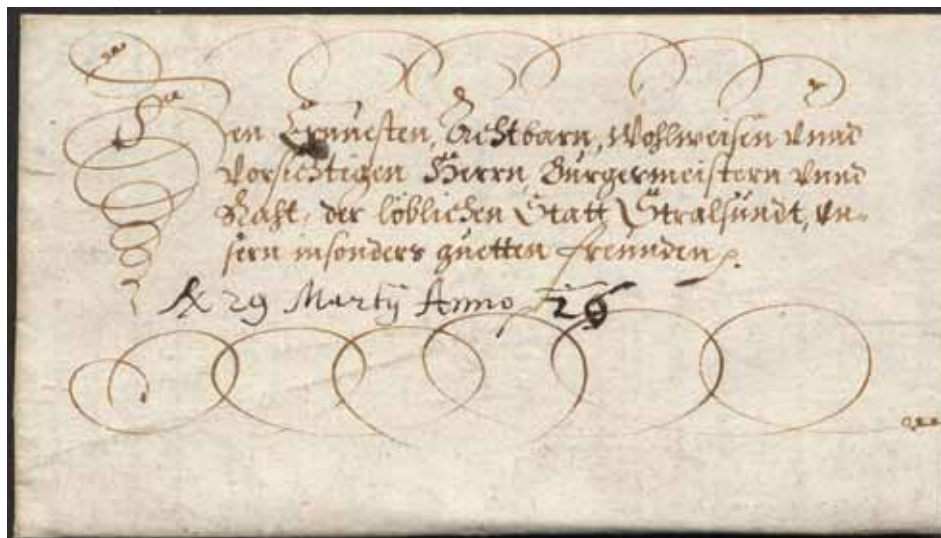 Den Ernuesten, Achtbarn, Wohlweisen vnnd
Vorsichtigen Herrn, Bürgermeistern vnnd
Raht, der löblichen Statt Stralsundt, vn-
sern insonders guetten freunden.
29 Martij Anno 26